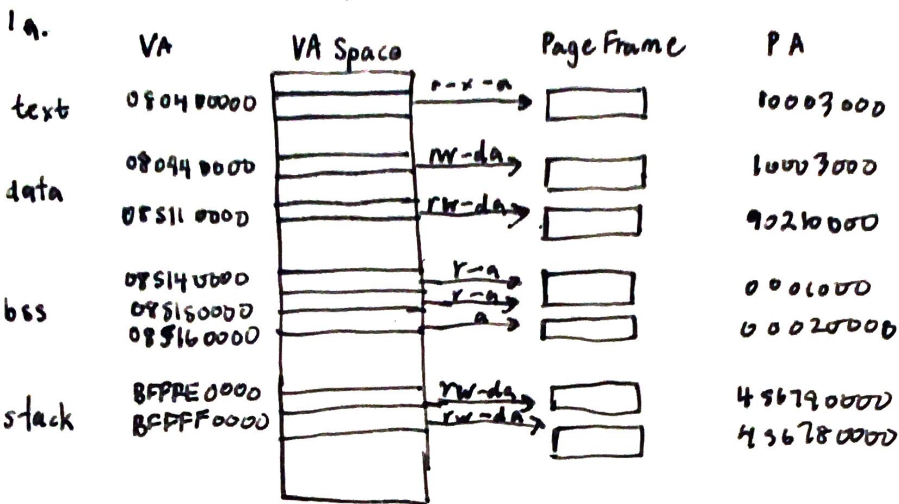 1a.
VA VA Space Page Frame PA
text 080400000 r-x-a 10003000
080440000 rw-da 10003000
data
085110000 rw-da 90210000
085140000 r-a
bss 085150000 r-a
085160000 a 00020000
BFFFE0000 rw-da 456790000
stack BFFFF0000 rw-da 456780000